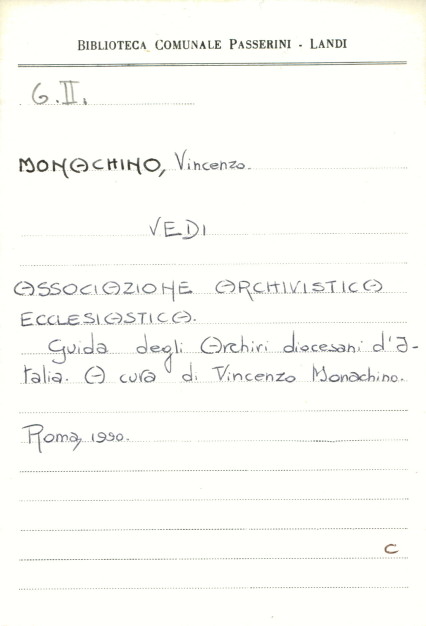 BIBLIOTECA COMUNALE PASSERINI - LANDI
G.II.
MONACHINO, Vincenzo.
VEDI
ASSOCIAZIONE ARCHIVISTICA
ECCLESIASTICA.
Guida degli Archivi diocesani d'I-
talia. A cura di Vincenzo Monachino.
Roma, 1990.
C